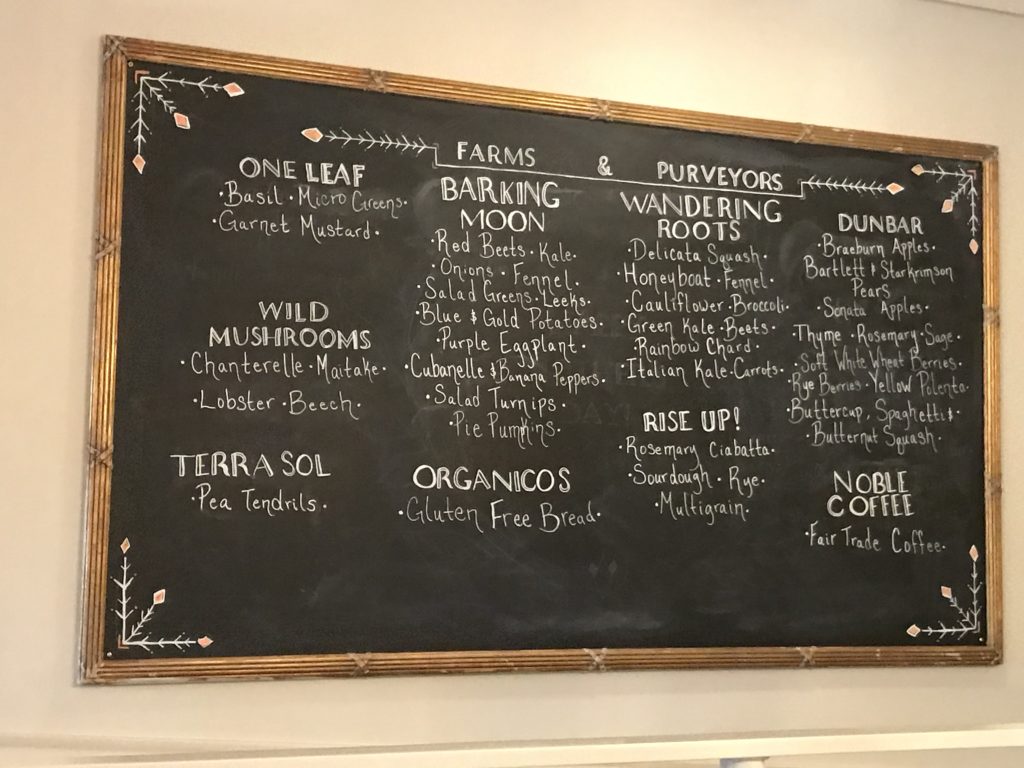 FARMS & PURVEYORS
ONE LEAF
·Basil ·Micro Greens·
·Garnet Mustard·
WILD
MUSHROOMS
·Chanterelle ·Maitake·
·Lobster ·Beech·
TERRA SOL
·Pea Tendrils·
BARKING
MOON
·Red Beets · Kale·
·Onions · Fennel·
·Salad Greens ·Leeks·
·Blue & Gold Potatoes·
·Purple Eggplant·
·Cubanelle & Banana Peppers·
·Salad Turnips·
·Pie Pumkins·
ORGANICOS
·Gluten Free Bread·
WANDERING
ROOTS
·Delicata Squash·
·Honeyboat ·Fennel·
·Cauliflower ·Broccoli·
·Green Kale ·Beets·
·Rainbow Chard·
·Italian Kale ·Carrots·
RISE UP!
·Rosemary Ciabatta·
·Sourdough · Rye·
·Multigrain·
DUNBAR
·Braeburn Apples·
Bartlett & Starkrimson
Pears
·Sonata Apples·
·Thyme ·Rosemary ·Sage·
·Soft White Wheat Berries·
·Rye Berries ·Yellow Polenta·
·Buttercup, Spaghetti &·
·Butternut Squash·
NOBLE
COFFEE
·Fair Trade Coffee·